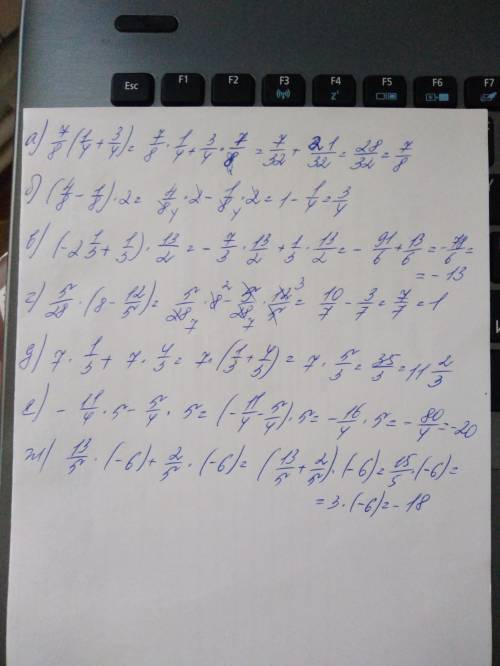 Esc F1 F2 F3 F4 F5 F6 F7
а) 7/8 (1/4 + 3/4) = 7/8 · 1/4 + 3/4 · 7/8 = 7/32 + 21/32 = 28/32 = 7/8
б) (4/8 - 1/8) · 2 = 4/8 · 2 - 1/8 · 2 = 1 - 1/4 = 3/4
в) (-2 1/3 + 1/3) · 13/2 = - 7/3 · 13/2 + 1/3 · 13/2 = - 91/6 + 13/6 = - 78/6 =
= - 13
г) 5/28 · (8 - 12/5) = 5/28 · 8 - 5/28 · 12/5 = 10/7 - 3/7 = 7/7 = 1
д) 7 · 1/3 + 7 · 4/3 = 7 · (1/3 + 4/3) = 7 · 5/3 = 35/3 = 11 2/3
е) - 11/4 · 5 - 5/4 · 5 = (- 11/4 - 5/4) · 5 = - 16/4 · 5 = - 80/4 = -20
ж) 13/5 · (-6) + 2/5 · (-6) = (13/5 + 2/5) · (-6) = 15/5 · (-6) =
= 3 · (-6) = - 18